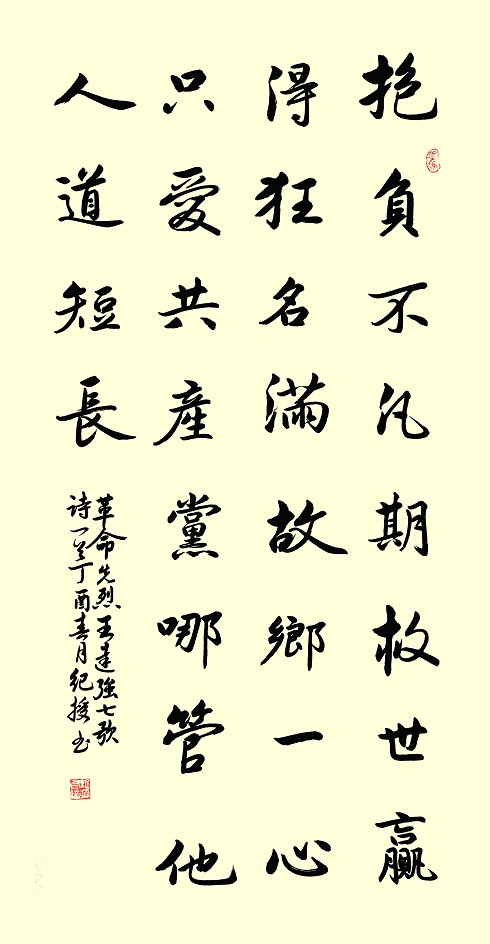 抱負不凡期救世贏
得狂名滿故鄉一心
只愛共產黨哪管他
人道短長
革命先烈王達強七歌
诗一首丁酉春月纪援书